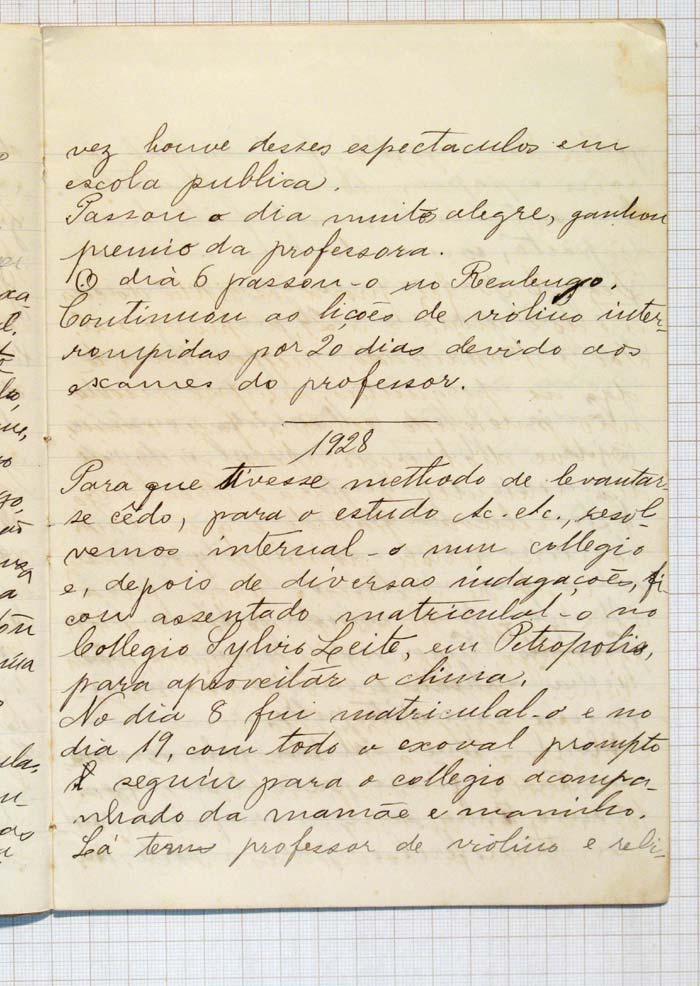 vez houve desses espectaculos em
escola publica.
Passou o dia muito alegre, ganhou
premio da professora.
O dia 6 passou-o no Realengo.
Continuou as lições de violino inter-
rompidas por 20 dias devido aos
exames do professor.
1928
Para que tivesse methodo de levantar-
se cêdo, para o estudo &c. &c., resol-
vemos internal-o num collegio
e, depois de diversas indagações, fi
cou assentado matriculal-o no
Collegio Sylvio Leite, em Petropolis,
para aproveitar o clima.
No dia 8 fui matriculal-o e no
dia 19, com todo o exoval prompto
seguiu para o collegio acompa-
nhado da mamãe e maninho.
Lá tem professor de violino e reli-